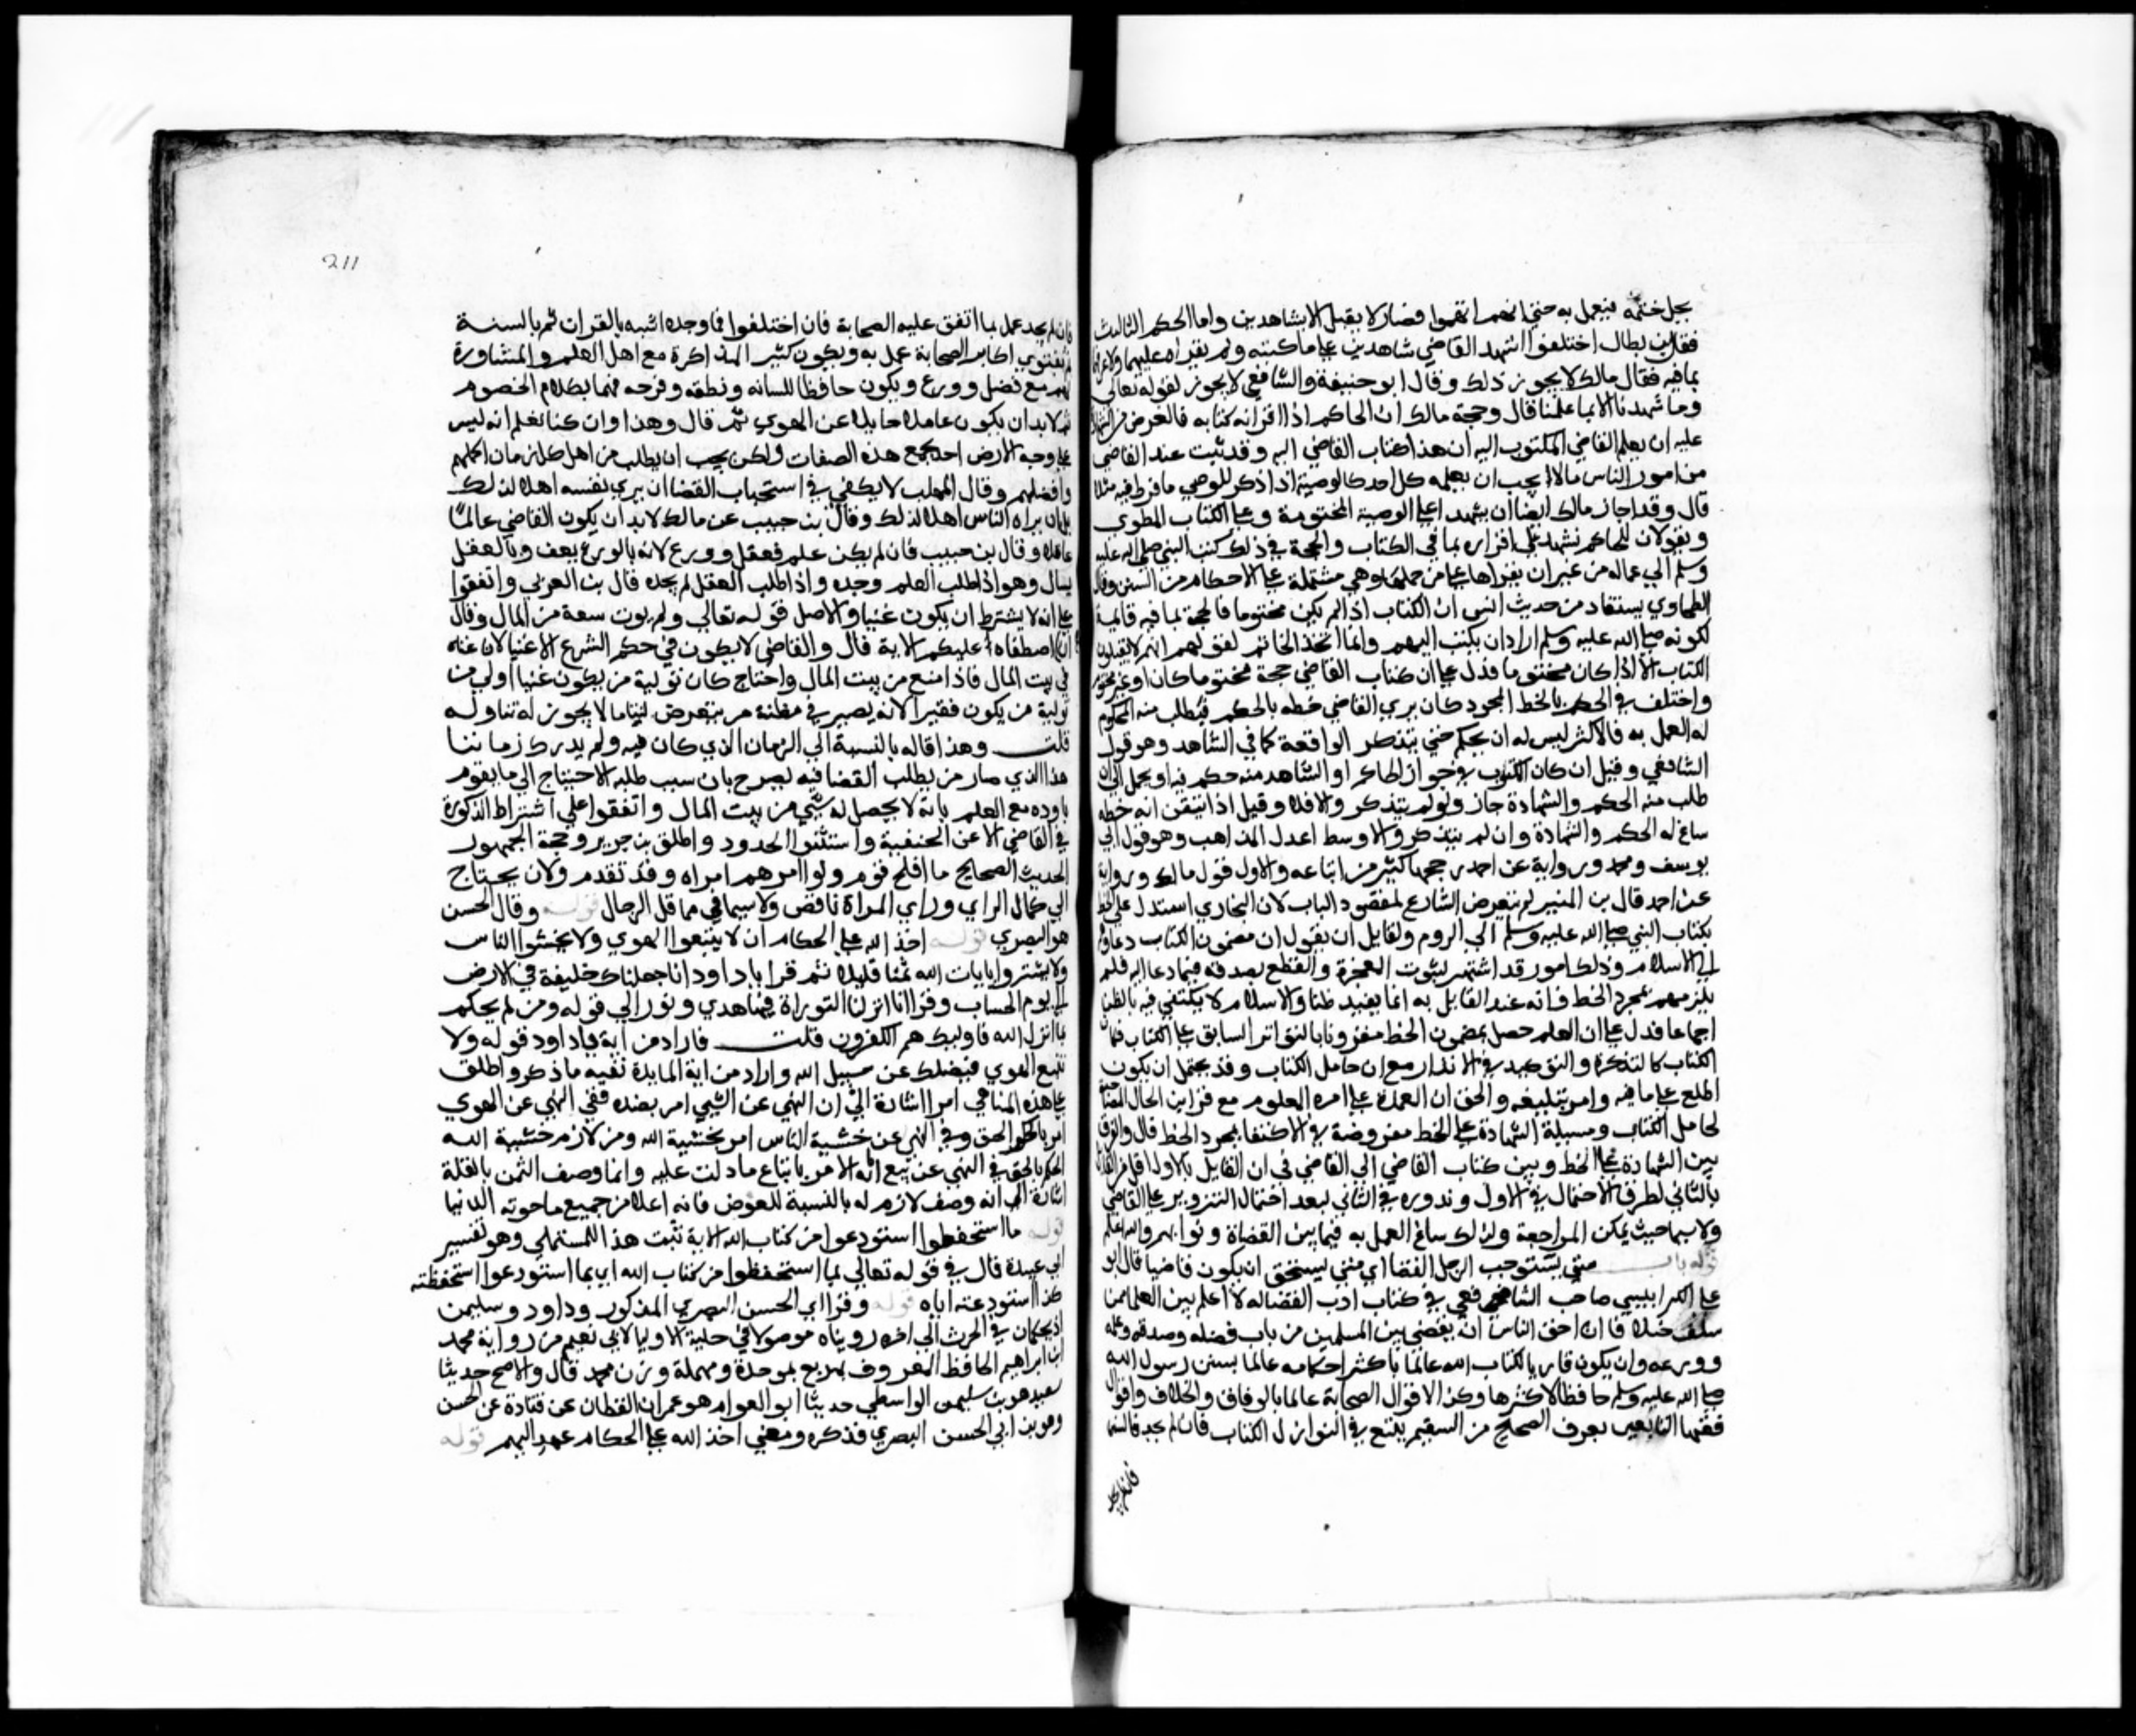 بجل ختمه فيعمل به حتى انهم اتهموا فصار لا يقبل الا بشاهدين واما الحكم الثالث
فقال بن بطال اختلفوا اشهد القاضي شاهدين على ما كتبه ولم يقراه عليهما ولا عرفا
بما فيه فقال مالك لا يجوز ذلك وقال ابو حنيفة والشافعي لا يجوز لقوله تعالى
وما شهدنا الا بما علمنا قال وحجة مالك ان الحاكم اذا اقر انه كتابه فالغرض من الشهادة
عليه ان يعلم القاضي المكتوب اليه ان هذا كتاب القاضي اليه وقد ثبت عند القاضي
من امور الناس ما لا يجب ان يعلمه كل احد كالوصية اذا ذكر الموصي ما فرط فيه مثلا
قال وقد اجاز مالك ايضا ان يشهدا على الوصية المختومة وعلى الكتاب المطوي
ويقولان للحاكم نشهد على اقراره بما في الكتاب والحجة في ذلك كتب النبي صلى الله عليه
وسلم الي عماله من غير ان يقراها على من حملها وهي مشتملة على الاحكام من السنن وقال
الطحاوي يستفاد من حديث انس ان الكتاب اذا لم يكن مختوما فالحجة بما فيه قائمة
لكونه صلى الله عليه وسلم اراد ان يكتب اليهم وانما اتخذ الخاتم لقولهم انهم لا يقبلون
الكتاب الا اذا كان مختوما فدل على ان كتاب القاضي حجة مختوما كان او غير مختوم
واختلف في الحكم بالخط المجرد كان يري القاضي خطه بالحكم فيطلب منه المحكوم
له العمل به فالاكثر ليس له ان يحكم حتى يتذكر الواقعة كما في الشاهد وهو قول
الشافعي وقيل ان كان المكتوب في حوز الحاكم او الشاهد منذ حكم فيه او تحمل الى ان
طلب منه الحكم والشهادة جاز ولو لم يتذكر والا فلا وقيل اذا تيقن انه خطه
ساغ له الحكم والشهادة وان لم يتذكر والاوسط اعدل المذاهب وهو قول ابي
يوسف ومحمد ورواية عن احمد رجحها كثير من اتباعه والاول قول مالك ورواية
عن احمد قال بن المنير لم يتعرض الشارح لمقصود الباب لان البخاري استدل على الخط
بكتاب النبي صلى الله عليه وسلم الي الروم ولقايل ان يقول ان مضمون الكتاب دعاوهم
الى الاسلام وذلك امر قد اشتهر لثبوت المعجزة والقطع بصدقه فيما دعا اليه فلم
يلزمهم بمجرد الخط فانه عند القايل به انما يفيد ظنا والاسلام لا يكتفي فيه بالظن
اجماعا فدل على ان العلم حصل بمضمون الخط مقرونا بالتواتر السابق على الكتاب فكان
الكتاب كالتذكرة والتوكيد في الانذار مع ان حامل الكتاب وقد يحتمل ان يكون
اطلع على ما فيه وامر بتبليغه والحق ان العمدة على امره المعلوم مع قراين الحال المصاحبة
لحامل الكتاب ومسيلة الشهادة على الخط مفروضة في الاكتفا بمجرد الخط قال والفرق
بين الشهادة على الخط وبين كتاب القاضي الي القاضي في ان القايل بالاول اقل من القايل
بالثاني لطرق الاحتمال في الاول وندوره في الثاني لبعد احتمال التزوير على القاضي
ولا سيما حيث تمكن المراجعة ولذلك ساغ العمل به فيما بين القضاة ونوابهم والله اعلم
قوله باب متى يستوجب الرجل القضا اي متى يستحق ان يكون قاضيا قال ابو
على الكرابيسي صاحب الشافعي في كتاب ادب القضا له لا اعلم بين العلما ممن
سلف خلافا ان احق الناس ان يقضي بين المسلمين من بان فضله وصدقه وعلمه
وورعه وان يكون قاريا لكتاب الله عالما باكثر احكامه عالما بسنن رسول الله
صلى الله عليه وسلم حافظا لاكثرها وكذا لاقوال الصحابة عالما بالوفاق والخلاف واقوال
فقهاء التابعين يعرف الصحيح من السقيم يتتبع في النوازل الكتاب فان لم يجد فالسنة
فان لم يجد
211
فان لم يجد عمل بما اتفق عليه الصحابة فان اختلفوا فما وجده اشبه بالقران ثم بالسنة
ثم بفتوي اكابر الصحابة عمل به ويكون كثير المذاكرة مع اهل العلم والمشاورة
لهم مع فضل وورع ويكون حافظا للسانه ونطقه وفرجه فهما بكلام الخصوم
ثم لا بد ان يكون عاملا مايلا عن الهوي ثم قال وهذا وان كنا نعلم انه ليس
على وجه الارض احد يجمع هذه الصفات ولكن يجب ان يطلب من اهل كل زمان اكملهم
وافضلهم وقال المهلب لا يكفي في استحباب القضا ان يري نفسه اهلا لذلك
بل ان يراه الناس اهلا لذلك وقال بن حبيب عن مالك لا بد ان يكون القاضي عالما
عاقلا وقال بن حبيب فان لم يكن علم فعقل وورع لانه بالورع يعف وبالعقل
يسال وهو اذا طلب العلم وجده واذا طلب العقل لم يجده قال بن العربي واتفقوا
على انه لا يشترط ان يكون غنيا والاصل قوله تعالي ولم يوت سعة من المال وقال
ان الله اصطفاه عليكم الاية قال والقاضي لا يكون في حكم الشرع الا غنيا لان غناه
في بيت المال فاذا منع من بيت المال واحتاج كان تولية من يكون غنيا اولي من
تولية من يكون فقيرا لانه يصير في مظنة من يتعرض لتناول ما لا يجوز له تناوله
قلت وهذا قاله بالنسبة الي الزمان الذي كان فيه ولم يدرك زماننا
هذا الذي صار من يطلب القضا فيه يصرح بان سبب طلبه الاحتياج الي ما يقوم
باوده مع العلم بانه لا يحصل له شي من بيت المال واتفقوا على اشتراط الذكورة
في القاضي الا عن الحنفية واستثنوا الحدود واطلق بن جرير وحجة الجمهور
الحديث الصحيح ما افلح قوم ولوا امرهم امراة وقد تقدم ولان يحتاج
الي كمال الراي وراي المراة ناقص ولا سيما في محافل الرجال قوله وقال الحسن
هو البصري قوله اخذ الله على الحكام ان لا يتبعوا الهوي ولا يخشوا الناس
ولا يشتروا بايات الله ثمنا قليلا ثم قرا يا داود انا جعلناك خليفة في الارض
الي يوم الحساب وقرا انا انزلنا التوراة فيها هدي ونور الي قوله ومن لم يحكم
بما انزل الله فاوليك هم الكفرون قلت فاراد من اية يا داود قوله ولا
تتبع الهوي فيضلك عن سبيل الله واراد من اية المايدة بقيه ما ذكر واطلق
على هذه المناهي امرا اشارة الي ان النهي عن الشي امر بضده ففي النهي عن الهوي
امر بالحكم الحق وفي النهي عن خشية الناس امر بخشية الله ومن لازم خشية الله
الحكم بالحق وفي النهي عن بيع اياته الامر باتباع ما دلت عليه وانما وصف الثمن بالقلة
اشارة الي انه وصف لازم له بالنسبة للعوض فانه اغلا من جميع ما حوته الدنيا
قوله ما استحفظوا استودعوا من كتاب الله الاية ثبت هذا للمستملي وهو تفسير
ابي عبيدة قال في قوله تعالي بما استحفظوا من كتاب الله اي بما استودعوا استحفظته
كذا استودعته اياه قوله وقرا اي الحسن البصري المذكور وداود وسليمن
اذ يحكمان في الحرث الي اخره رويناه موصولا في حلية الاوليا لابي نعيم من رواية محمد
ابن ابراهيم الحافظ المعروف بمربع بموحدة ومهملة وزن محمد قال
سعيد هو بن سليمن الواسطي حدثنا ابو العوام هو عمران القطان عن قتادة عن الحسن
وهو بن ابي الحسن البصري فذكره ومعني اخذ الله على الحكام عهد اليهم قوله